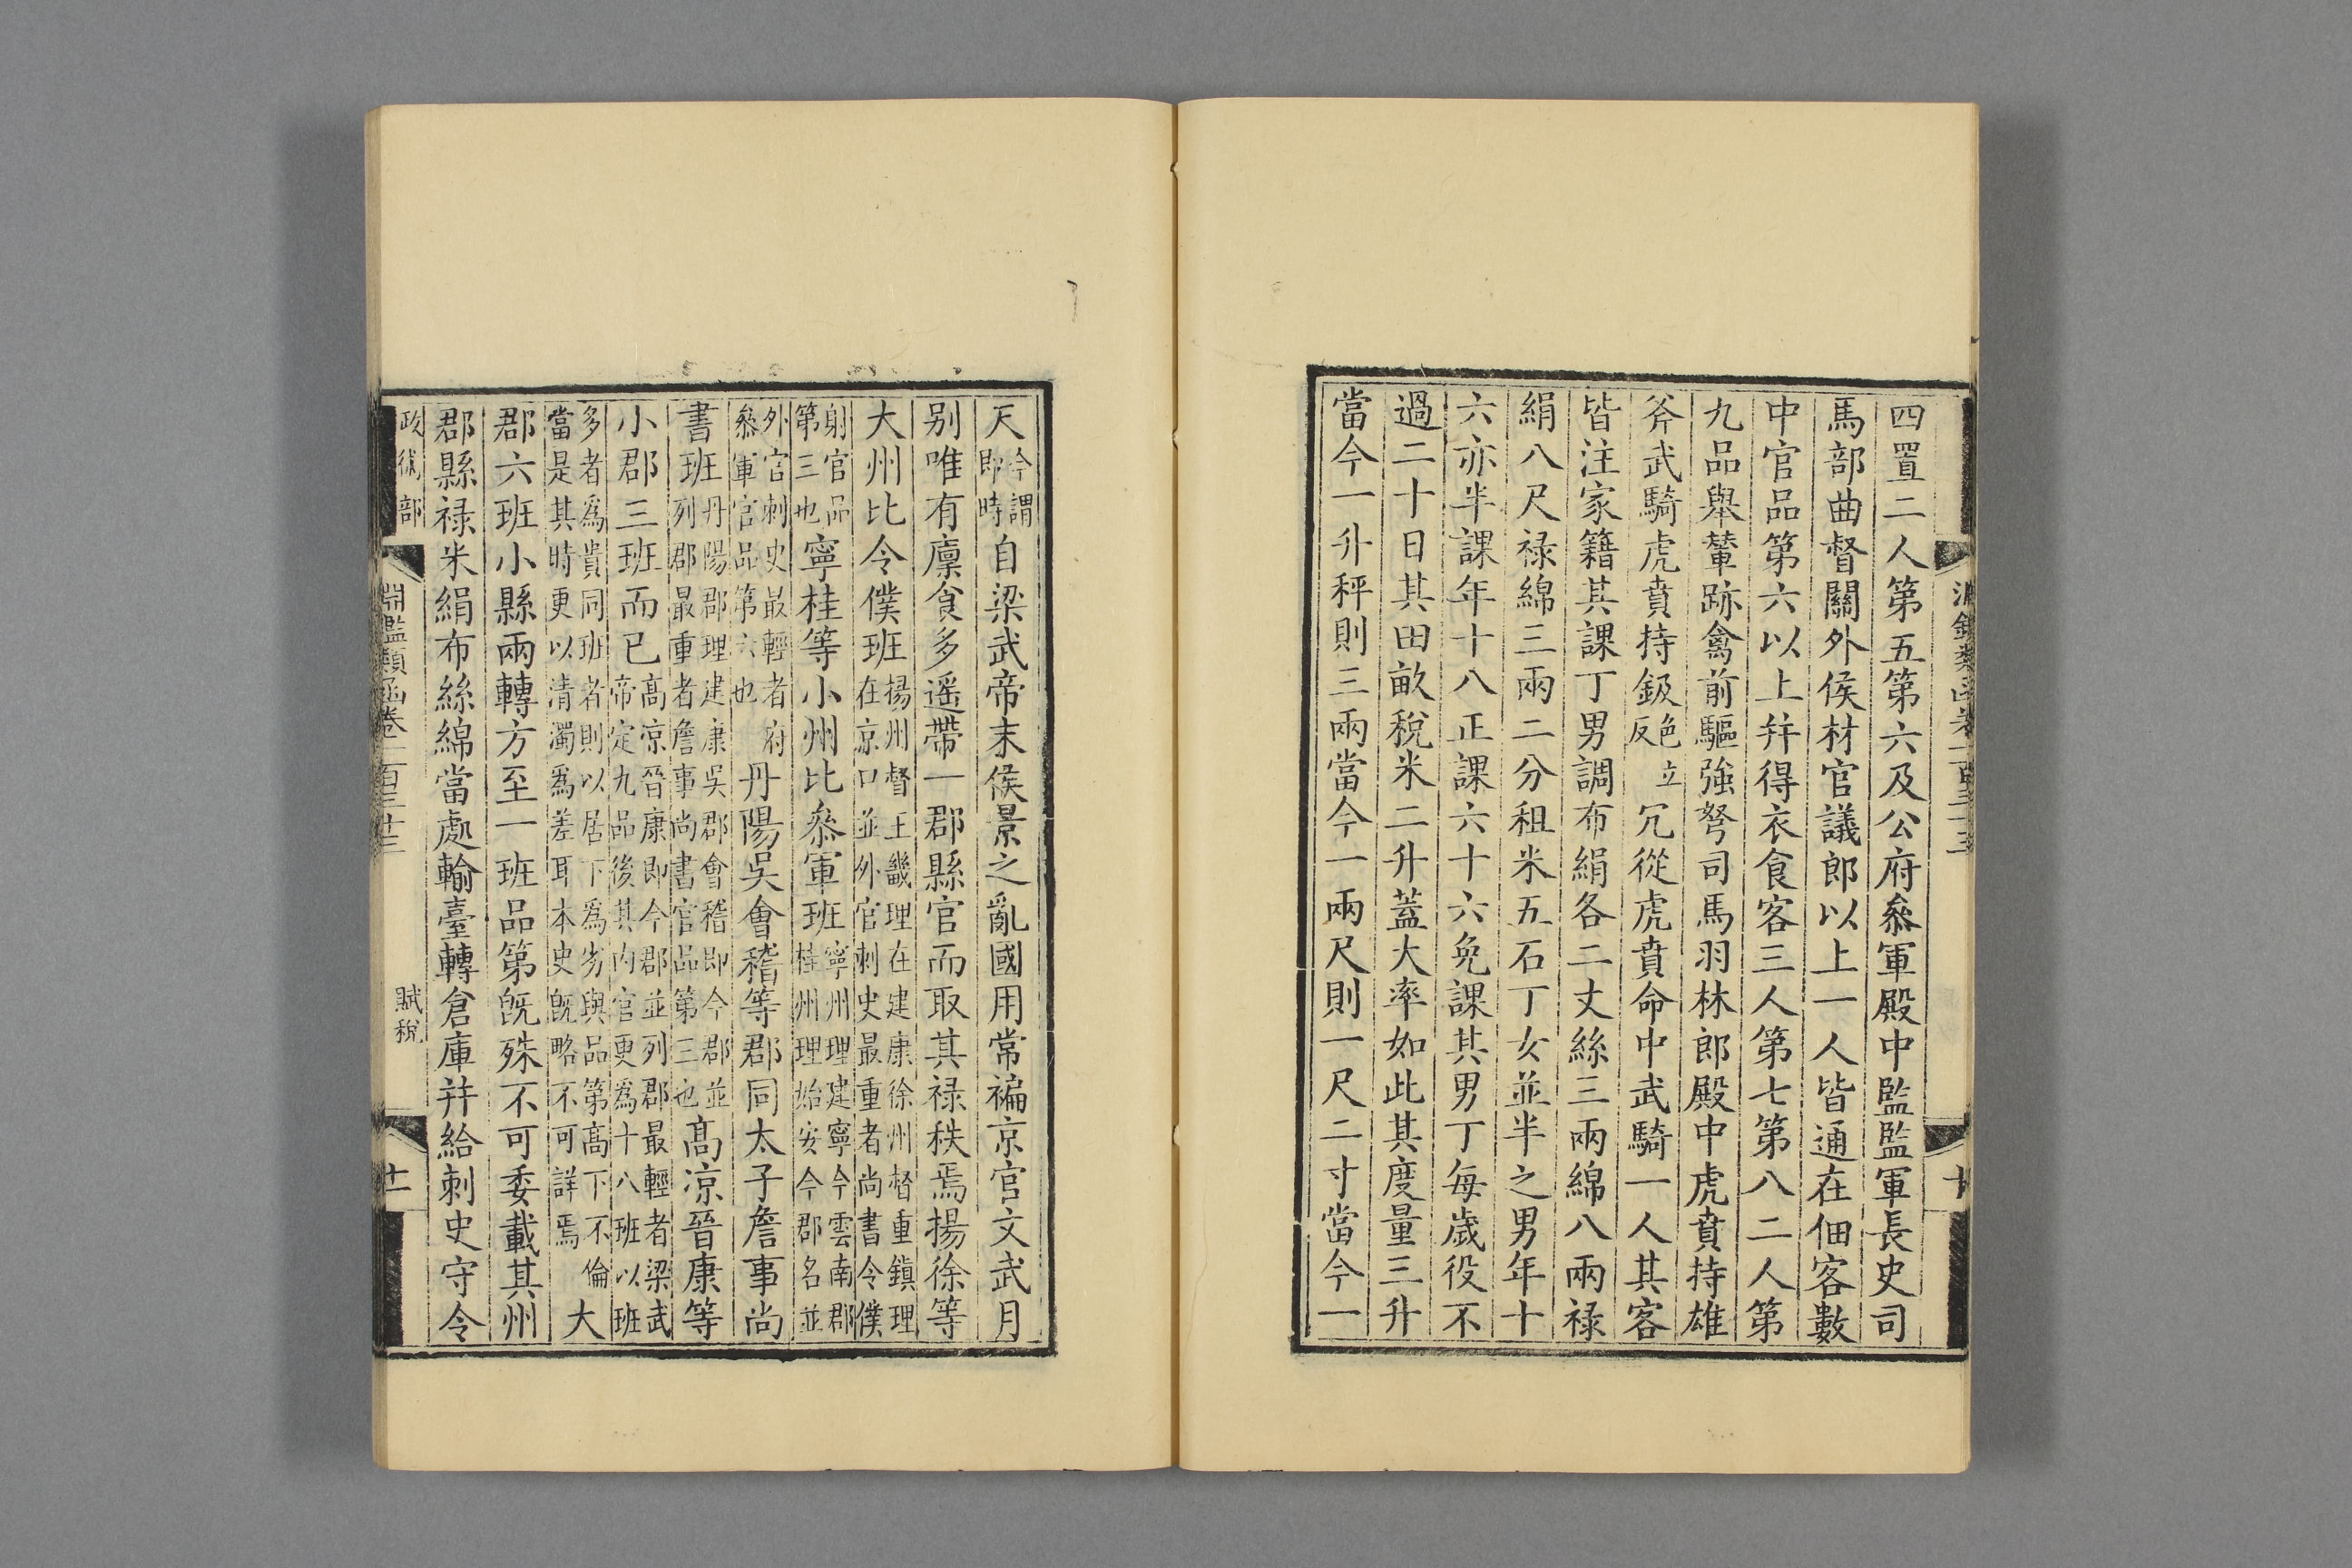 四置二人第五第六及公府叅軍殿中監監軍長史司
馬部曲督關外侯材官議郎以上一人皆通在佃客數
中官品第六以上幷得衣食客三人第七第八二人第
九品舉輦跡禽前驅強弩司馬羽林郎殿中虎賁持雄
斧武騎虎賁持鈒色立反冗從虎賁命中武騎一人其客
皆注家籍其課丁男調布絹各二丈絲三兩綿八兩祿
絹八尺祿綿三兩二分租米五石丁女並半之男年十
六亦半課年十八正課六十六免課其男丁每歲役不
過二十日其田畝稅米二升蓋大率如此其度量三升
當今一升秤則三兩當今一兩尺則一尺二寸當今一
天今謂即時自梁武帝末侯景之亂國用常褊京官文武月
别唯有廩食多遥帶一郡縣官而取其祿秩焉揚徐等
大州比令僕班揚州督王畿理在建康徐州督重鎮理在京口並外官刺史最重者尚書令僕
射官品第三也寧桂等小州比叅軍班寧州理建寧今雲南郡桂州理始安今郡名並
外官刺史最輕者府叅軍官品第六也丹陽吳會稽等郡同太子詹事尚
書班丹陽郡理建康吳郡會稽即今郡並列郡最重者詹事尚書官品第三也高凉晉康等
小郡三班而已高凉晉康即今郡並列郡最輕者梁武帝定九品後其內官更爲十八班以班
多者爲貴同班者則以居下爲劣與品第高下不倫當是其時更以清濁爲差耳本史旣略不可詳焉大
郡六班小縣兩轉方至一班品第旣殊不可委載其州
郡縣祿米絹布絲綿當處輸臺轉倉庫幷給刺史守令
政術部
淵鑑類函卷一百三十三
賦稅
十一